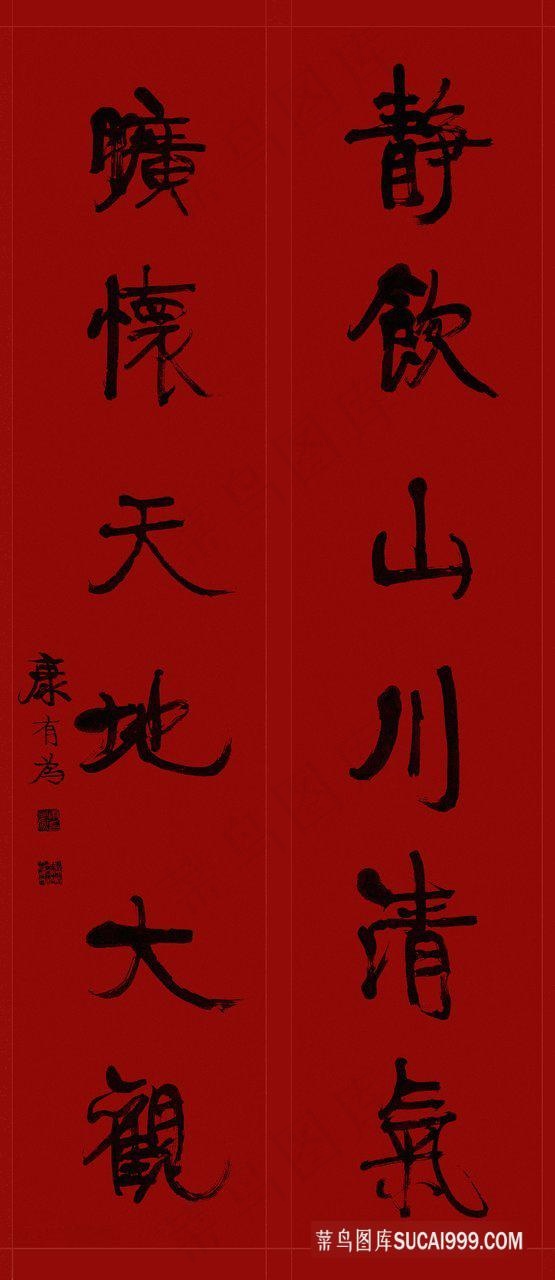 靜飲山川清氣
曠懷天地大觀
康有為
菜鸟图库SUCAI999.COM